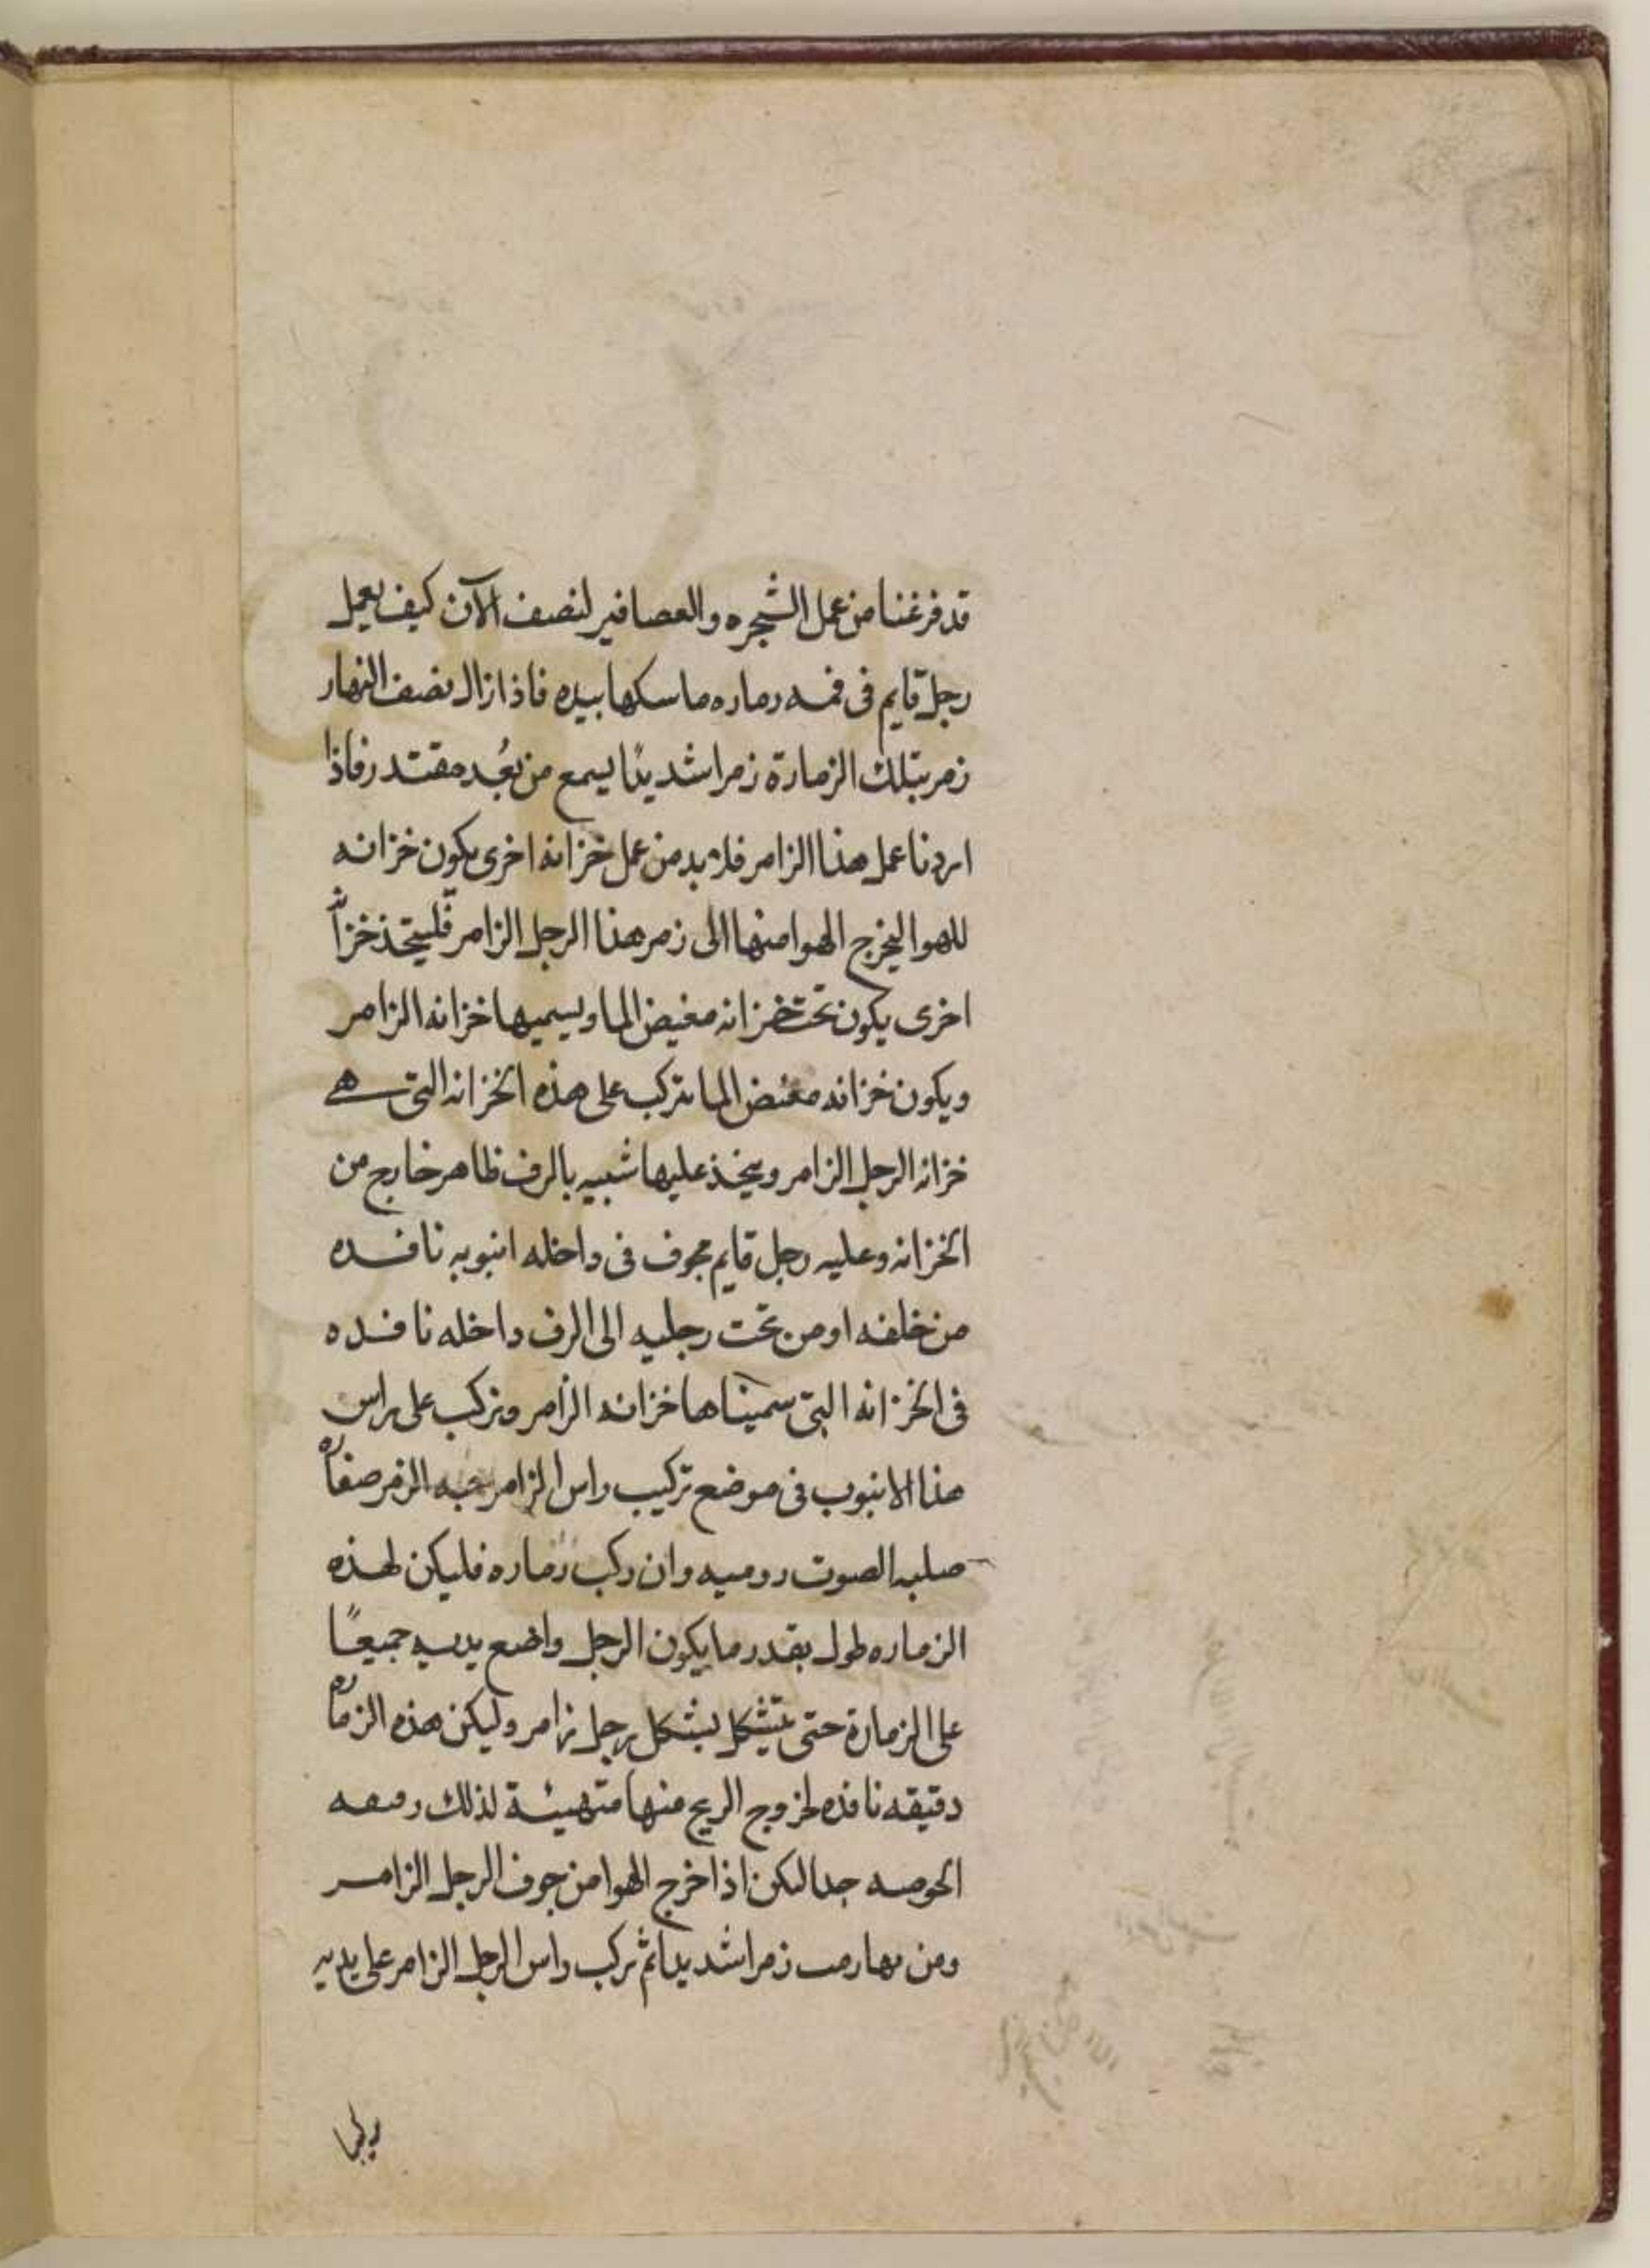 قد فرغنا من عمل الشجره والعصافير لنصف الآن كيف يعمل
رجل قايم فى فمه زماره ماسكها بيده فاذا زال نصف النهار
زمر بتلك الزمارة زمرا شديدًا يسمع من بُعد مقتدر فاذا
اردنا عمل هذا الزامر فلا بد من عمل خزانه اخرى يكون خزانه
للهوا ليخرج الهوا منها الى زمر هذا الرجل الزامر فليتخذ خزانه
اخرى يكون تحت خزانه مغيض الما ويسميها خزانه الزامر
ويكون خزانه مغيض الما تركب على هذه الخزانه التى هے
خزانه الرجل الزامر ويتخذ عليها شبيه بالرف ظاهر خارج من
الخزانه وعليه رجل قايم مجوف فى داخله انبوبه نافده
من خلفه او من تحت رجليه الى الرف داخله نافده
فى الخزانه التى سميناها خزانه الزامر وتركب على راس
هذا الانبوب فى موضع تركيب راس الزامر جبه الزمر صفاره
صلبه الصوت روميه وان ركب زماره فليكن لهذه
الزماره طول بقدر ما يكون الرجل واضع يديه جميعًا
على الزمارة حتى يتشكل بشكل رجل زامر وليكن هذه الزماره
دقيقه نافذه لخروج الريح منها متهيئة لذلك
جدا لكن اذا خرج الهوا من جوف الرجل الزامر
ومن زمرا شديدا ثم تركب راس الرجل الزامر على يديه